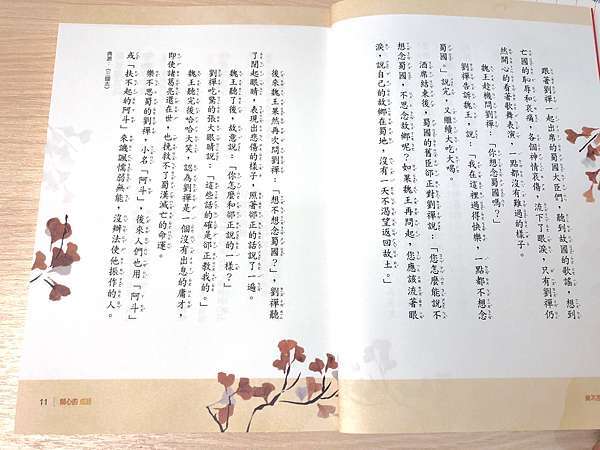 跟著劉禪一起出席的蜀國大臣們，聽到故國的歌謠，想到
亡國的恥辱和哀痛，各個神情哀傷，流下了眼淚，只有劉禪仍
然開心的看著歌舞表演，一點都沒有難過的樣子。
魏王趁機問劉禪：「你想念蜀國嗎？」
劉禪告訴魏王，說：「我在這裡過得快樂，一點都不想念
蜀國。」說完，又繼續大吃大喝。
酒席結束後，蜀國的舊臣郤正對劉禪說：「您怎麼能說不
想念蜀國，不思念故鄉呢？如果魏王再問起，您應該流著眼
淚，說自己的故鄉在蜀地，沒有一天不渴望返回故土。」
後來魏王果然再次問劉禪：「想不想念蜀國？」劉禪聽
了閉起眼睛，表現出悲傷的樣子，照著郤正的話說了一遍。
魏王聽了後，故意說：「你怎麼和郤正說的一樣？」
劉禪吃驚的張大眼睛說：「這些話的確是郤正教我的。」
魏王聽完後哈哈大笑，認為劉禪是一個沒有出息的庸才，
即使諸葛亮還在世，也挽救不了蜀漢滅亡的命運。
樂不思蜀的劉禪，小名「阿斗」，後來人們也用「阿斗」
或「扶不起的阿斗」來譏諷懦弱無能，沒辦法使他振作的人。
典源：《三國志》
11
開心的 成語